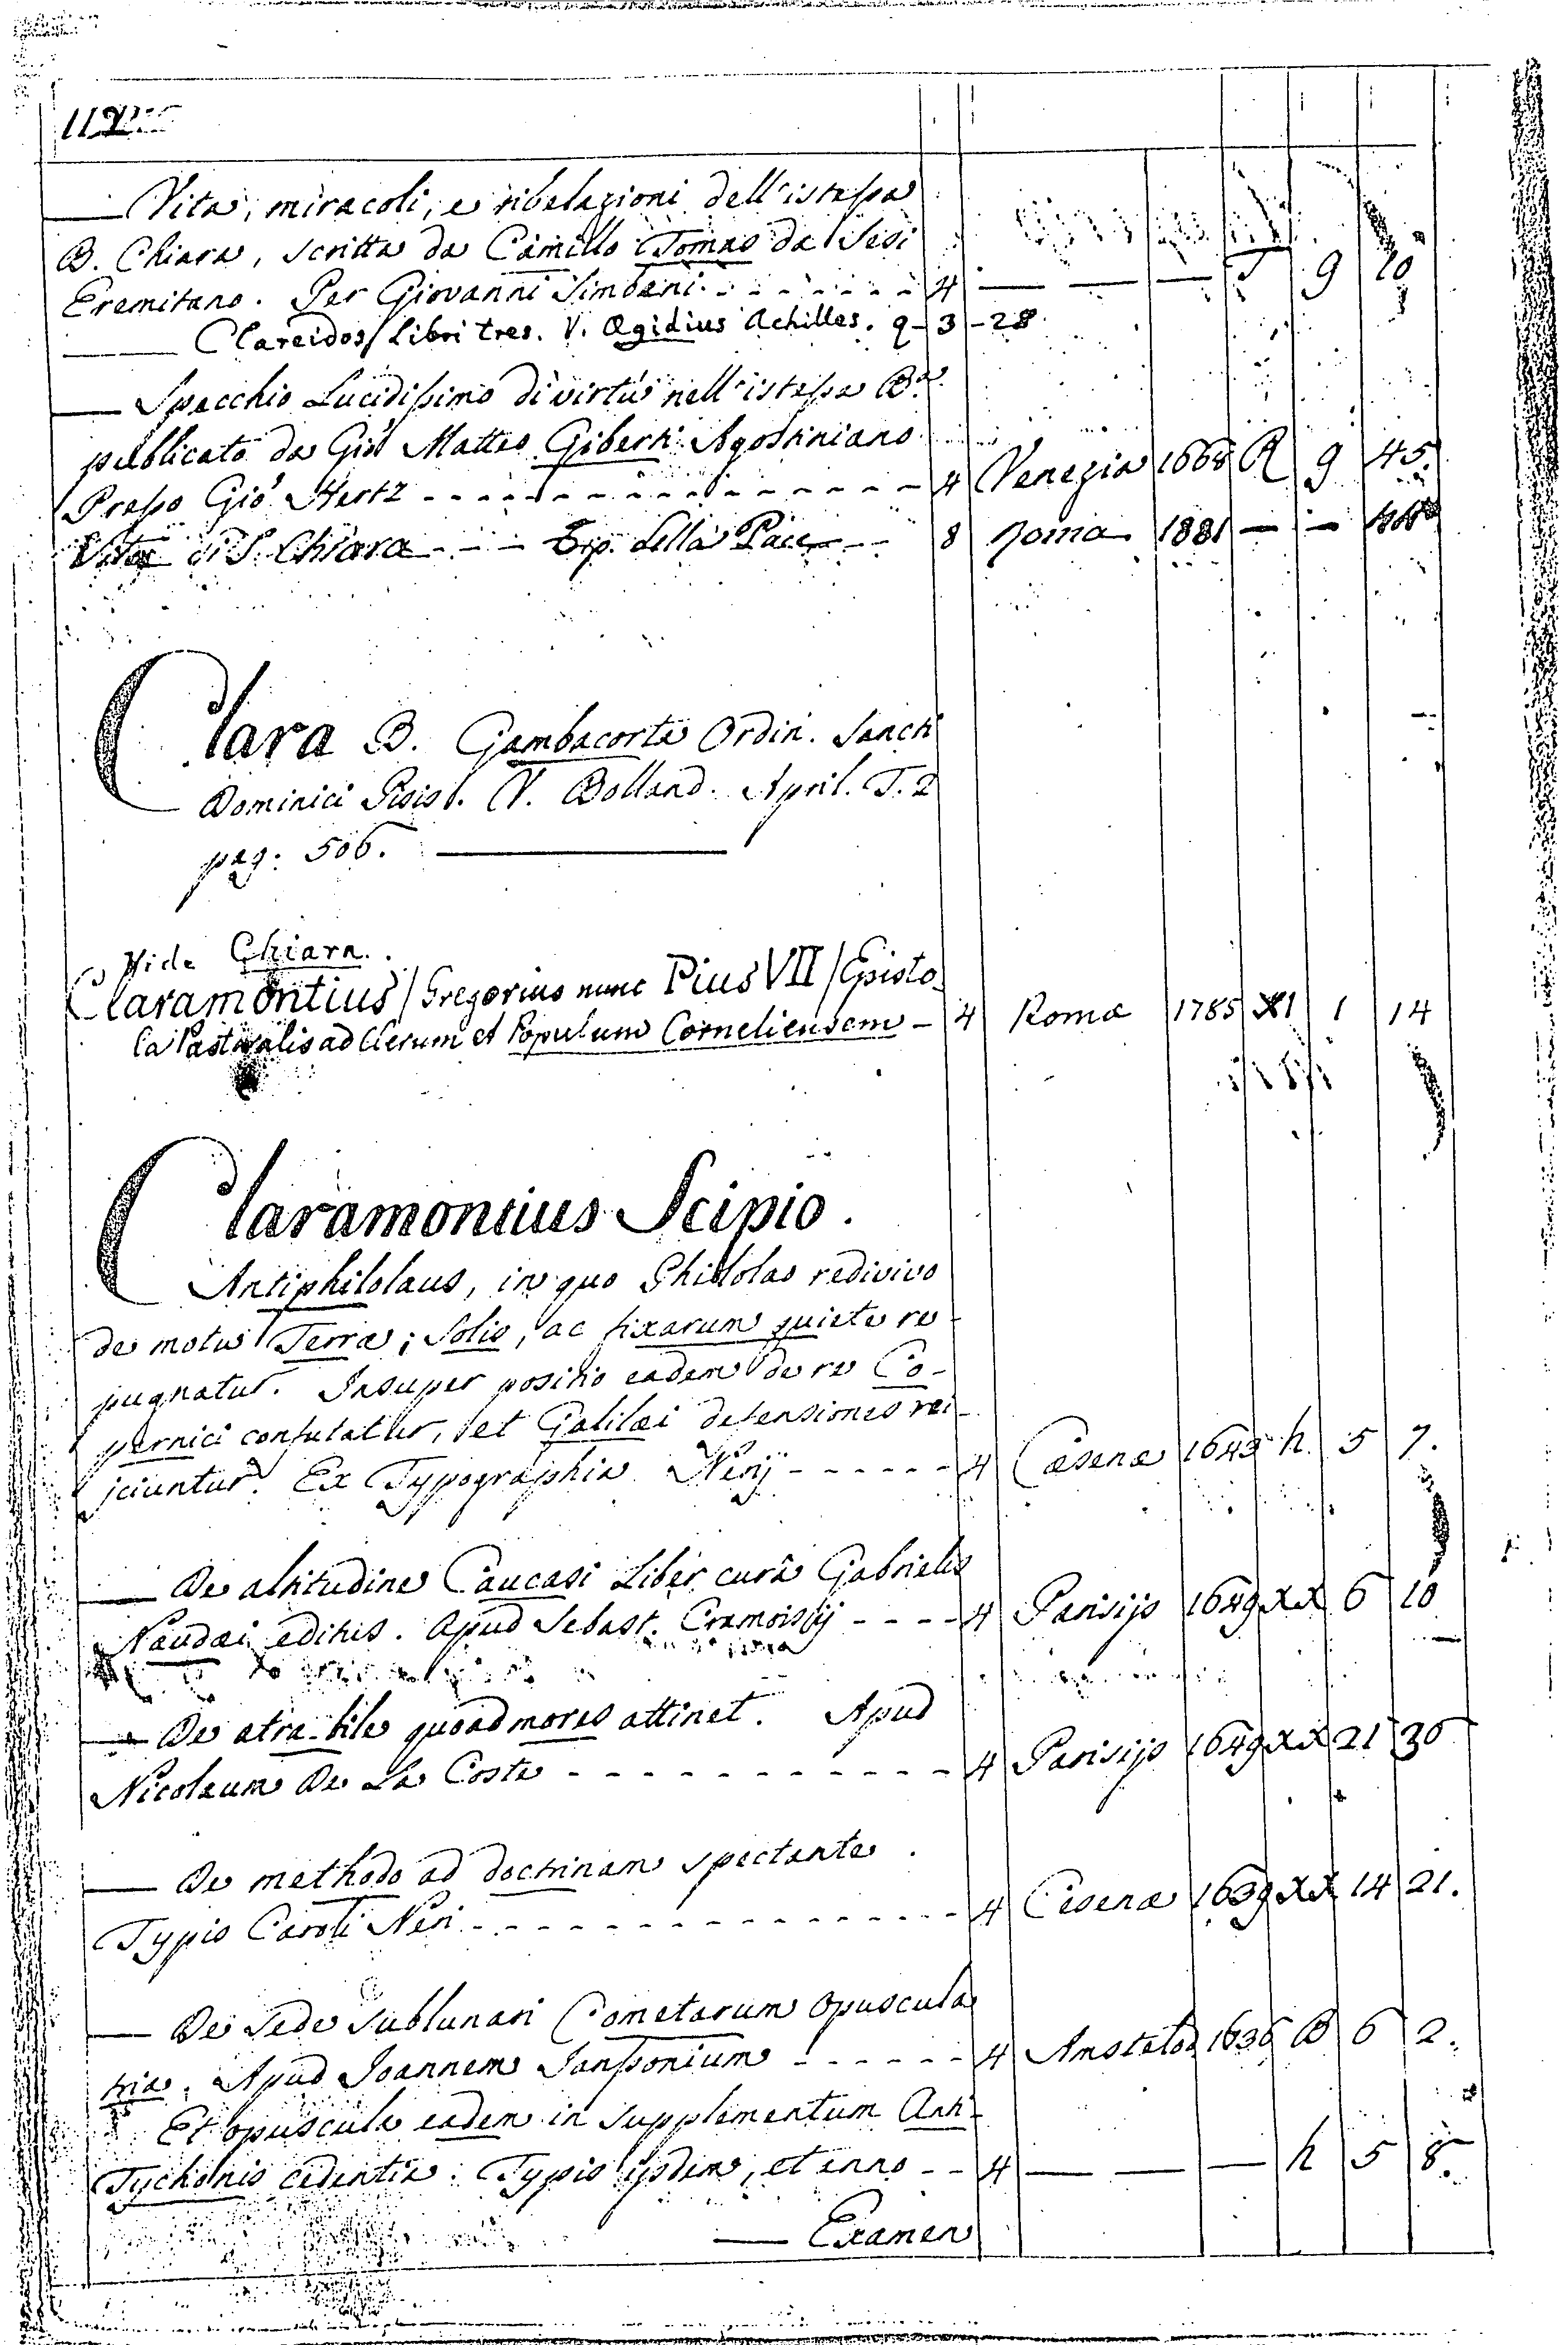 112
— Vita, miracoli, e ribelazioni dell'istessa
B. Chiara, scritta da Camillo Tomao da Sisi
Eremitano. Per Giovanni Simbeni - - - - - - 4 — — — T 9 10
— Clareidos/Libri tres. V. Ægidius Achilles. q-3-28.
— Specchio Lucidissimo di virtù nell'istessa B.a
pubblicato da Giō Matteo Giberti Agostiniano
Presso Giō Hertz - - - - - - - - - - 4 Venezia 1668 R 9 45.
Vita di S. Chiara - - - Tip. della Pace - - 8 Roma 1881 — —
Clara B. Gambacorta Ordin. Sancti
Dominici Pisis. V. Bolland. April. T. 2
pag: 506. —
Vide Chiara.
Claramontius/Gregorius nunc Pius VII/Episto-
la Pastoralis ad Clerum et Populum Corneliensem - 4 Romæ 1785 XI 1 14
Claramontius Scipio.
Antiphilolaus, in quo Philolao redivivo
de motu Terræ; Solis, ac fixarum quiete re-
pugnatur. Insuper positio eadem de re Co-
pernici confutatur, et Galilæi defensiones rei-
jciuntur. Ex Typographia Nerij - - - - - - 4 Cæsenæ 1643 h. 5 7.
— De altitudine Caucasi Liber curâ Gabrielis
Naudæi editus. Apud Sebast. Cramoisij - - - - 4 Parisijs 1649 XX 6 10
— De atra bile quoad mores attinet. Apud
Nicolaum De La Coste - - - - - - - - - - - 4 Parisijs 1649 XX 21 36
— De methodo ad doctrinam spectante.
Typis Caroli Neri - - - - - - - - - - - - - 4 Cesenæ 1639 XX 14 21.
— De Sede sublunari Cometarum Opuscula
tria. Apud Joannem Janssonium - - - - - - 4 Amstelod. 1636 B 6 2.
Et opuscula eadem in supplementum Anti-
Tychonis cedentia. Typis ijsdem, et anno - - 4 — — — h 5 8.
— Examen